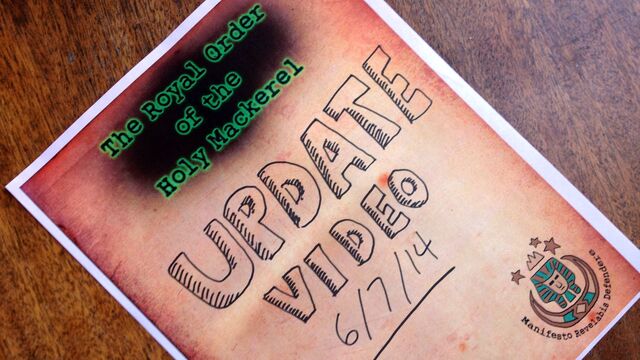 The Royal Order
of the
Holy Mackerel
UPDATE
VIDEO
6/7/14
Manifesto Revelabis Defendere